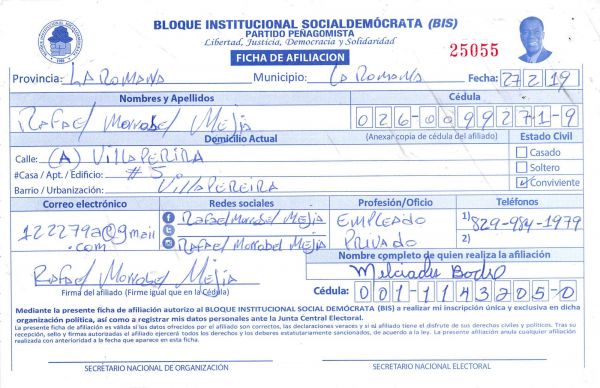 BLOQUE INSTITUCIONAL SOCIALDEMÓCRATA (BIS)
PARTIDO PEÑAGOMISTA
Libertad, Justicia, Democracia y Solidaridad
25055
FICHA DE AFILIACION
Provincia: LA ROMANA Municipio: LA ROMANA Fecha: 27 2 19
Nombres y Apellidos Cédula
Rafael Morrobel Mejia 026-0099271-9
Domicilio Actual (Anexar copia de cédula del afiliado) Estado Civil
Calle: (A) Villa PERIRA Casado
#Casa / Apt. / Edificio: #5 Soltero
Barrio / Urbanización: Villa PEREIRA Conviviente
Correo electrónico Redes sociales Profesión/Oficio Teléfonos
122279a@gmail.com Rafael Morrobel Mejia EMPLEADO 1) 829-984-1979
Rafael Morrobel Mejia PRIVADO 2)
Nombre completo de quien realiza la afiliación
Rafael Morrobel Mejia
Firma del afiliado (Firme igual que en la Cédula) Cédula: 001-1143205-0
Mediante la presente ficha de afiliación autorizo al BLOQUE INSTITUCIONAL SOCIAL DEMÓCRATA (BIS) a realizar mi inscripción única y exclusiva en dicha
organización política, así como a registrar mis datos personales ante la Junta Central Electoral.
La presente ficha de afiliación es válida si los datos ofrecidos por el afiliado son correctos, las declaraciones veraces y si el afiliado tiene el disfrute de sus derechos civiles y políticos. Tras su
recepción, sello y firmas autorizadas el afiliado ejercerá todos los derechos y los deberes estatutariamente sancionados, de acuerdo a la ley. La presente afiliación anula cualquier afiliación
realizada con anterioridad a la fecha que aparece en esta ficha.
SECRETARIO NACIONAL DE ORGANIZACIÓN SECRETARIO NACIONAL ELECTORAL